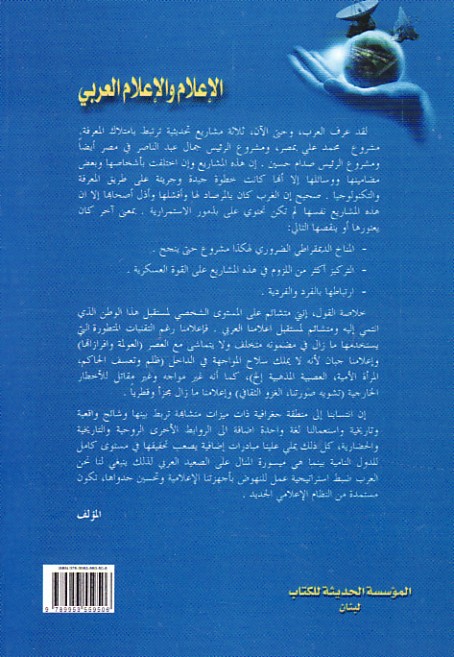 الإعلام والإعلام العربي
لقد عرف العرب، وحتى الآن، ثلاثة مشاريع تحديثية ترتبط بامتلاك المعرفة.
مشروع محمد علي بمصر، ومشروع الرئيس جمال عبد الناصر في مصر أيضاً
ومشروع الرئيس صدام حسين . إن هذه المشاريع وإن اختلفت بأشخاصها وبعض
مضامينها ووسائلها إلا أنها كانت خطوة جيدة وجريئة على طريق المعرفة
والتكنولوجيا . صحيح إن الغرب كان بالمرصاد لها وأفشلها وأذل أصحابها إلا ان
هذه المشاريع نفسها لم تكن تحتوي على بذور الاستمرارية . بمعنى آخر كان
يعتورها أو ينقصها التالي:
– المناخ الديمقراطي الضروري لهكذا مشروع حتى ينجح .
– التركيز أكثر من اللزوم في هذه المشاريع على القوة العسكرية .
– ارتباطها بالفرد والفردية .
خلاصة القول، إنني متشائم على المستوى الشخصي لمستقبل هذا الوطن الذي
انتمي إليه ومتشائم لمستقبل اعلامنا العربي . فإعلامنا رغم التقنيات المتطورة التي
يستخدمها ما زال في مضمونه متخلف ولا يتماشى مع العصر (العولمة وافرازاتها)
وإعلامنا جبان لأنه لا يملك سلاح المواجهة في الداخل (ظلم وتعسف الحاكم،
المرأة الأمية، العصبية المذهبية إلخ)، كما أنه غير مواجه وغير مقاتل للأخطار
الخارجية (تشويه صورتنا، الغزو الثقافي) وإعلامنا ما زال مجزأ وقطرياً .
إن انتسابنا إلى منطقة جغرافية ذات ميزات متشابهة تربط بينها وشائج واقعية
وتاريخية واستعمالنا لغة واحدة اضافة الى الروابط الأخرى الروحية والتاريخية
والحضارية، كل ذلك يملي علينا مبادرات إضافية يصعب تحقيقها في مستوى كامل
للدول النامية بينما هي ميسورة المنال على الصعيد العربي لذلك ينبغي لنا نحن
العرب ضبط استراتيجية عمل للنهوض بأجهزتنا الإعلامية وتحسين جدواها، تكون
مستمدة من النظام الإعلامي الجديد .
المؤلف
المؤسسة الحديثة للكتاب
لبنان